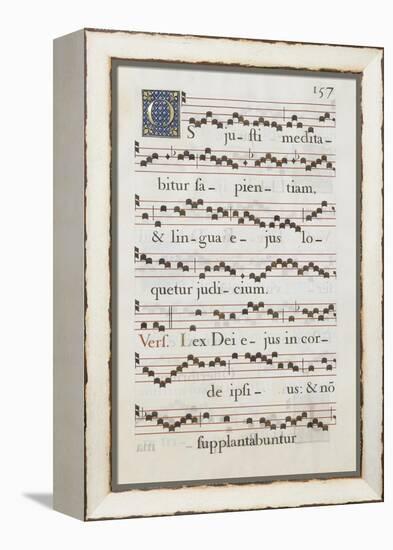 157
OS ju- sti medita-
bitur sa- pien- tiam,
& lin- gua e- jus lo-
quetur judi- cium.
Vers. Lex Dei e- jus in cor-
de ipsi- us: & nō
supplantabuntur